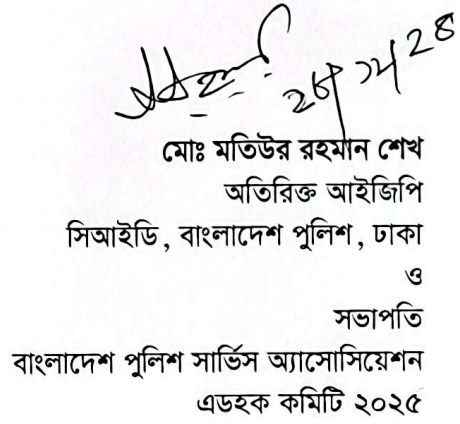 মোঃ মতিউর রহমান শেখ
অতিরিক্ত আইজিপি
সিআইডি, বাংলাদেশ পুলিশ, ঢাকা
ও
সভাপতি
বাংলাদেশ পুলিশ সার্ভিস অ্যাসোসিয়েশন
এডহক কমিটি ২০২৫